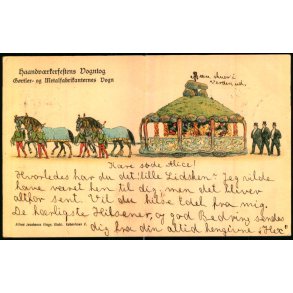 Haandværkerfestens Vogntog
Gørtler- og Metalfabrikanternes Vogn
Kære søde Alice!
Hvorledes har du det lille Lidsken? Jeg vilde
have været hen til dig, men det bliver
altfor sent. Vil du hilse Edel fra mig.
De hærligste Hilsener, og god Bedring sendes
dig fra din altid hengivne "Hex"
Alfred Jacobsens Lit. Etabl. København